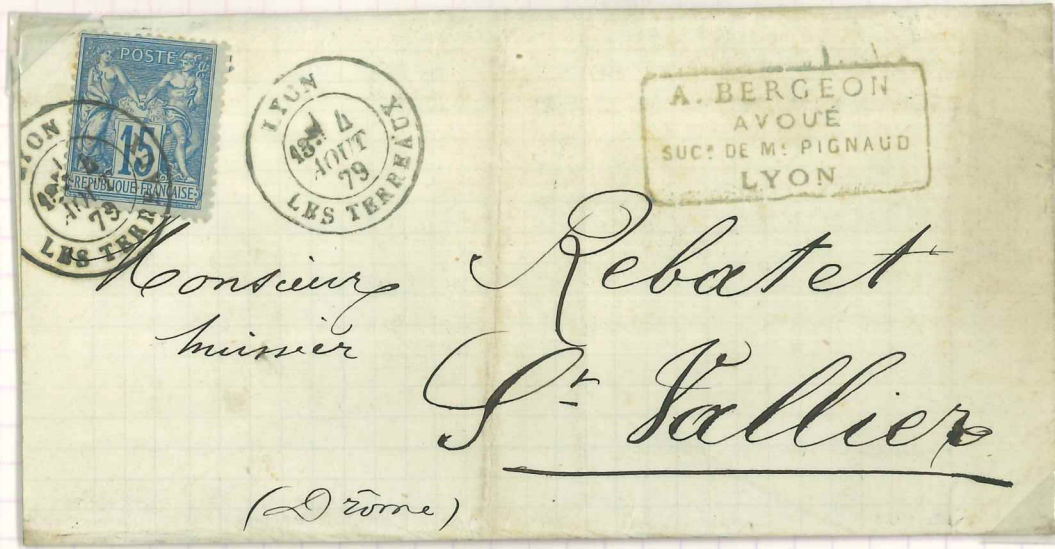 POSTE
15
REPUBLIQUE FRANÇAISE
LYON
4
AOUT
79
LES TERREAUX
LYON
4
79
LES TERR
A. BERGEON
AVOUÉ
SUCR DE ME PIGNAUD
LYON
Monsieur Rebatet
huissier
St Vallier
(Drôme)